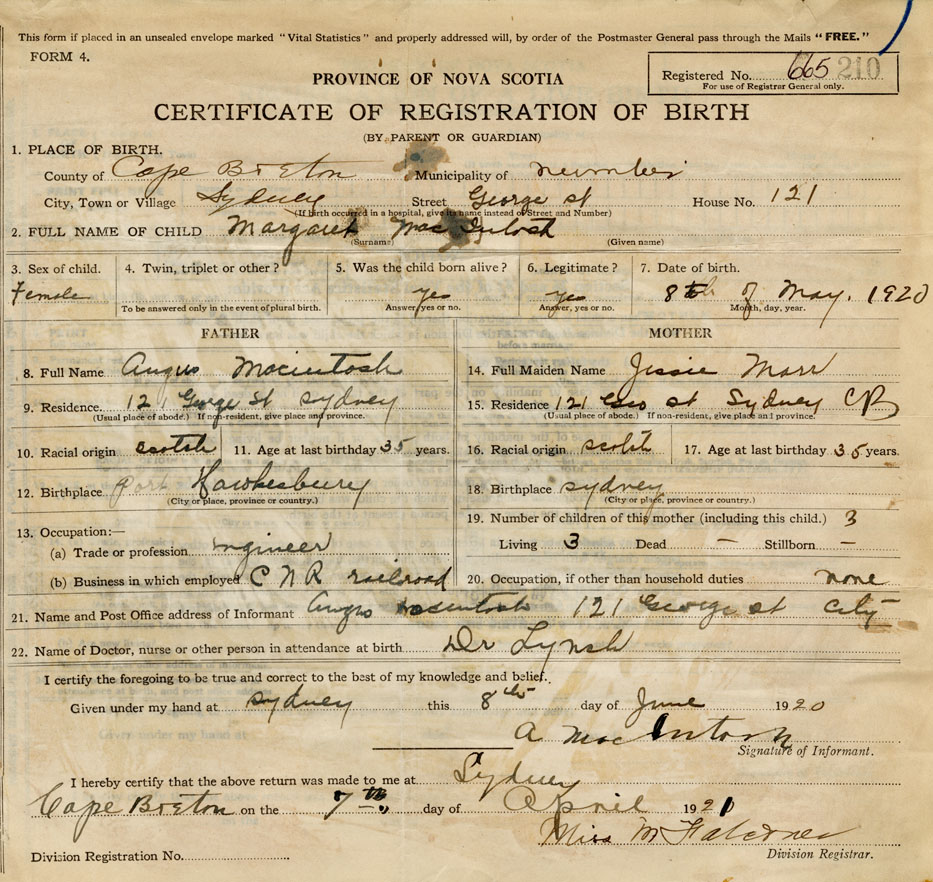 This form if placed in an unsealed envelope marked "Vital Statistics" and properly addressed will, by order of the Postmaster General pass through the Mails "FREE."
FORM 4.
Registered No. 665 210
For use of Registrar General only.
PROVINCE OF NOVA SCOTIA
CERTIFICATE OF REGISTRATION OF BIRTH
(BY PARENT OR GUARDIAN)
1. PLACE OF BIRTH.
County of Cape Breton Municipality of
City, Town or Village Sydney Street George st House No. 121
(If birth occurred in a hospital, give its name instead of Street and Number)
2. FULL NAME OF CHILD Margaret MacIntosh
(Surname) (Given name)
3. Sex of child. 4. Twin, triplet or other? 5. Was the child born alive? 6. Legitimate? 7. Date of birth.
Female yes yes 8th of May. 1920
To be answered only in the event of plural birth. Answer yes or no. Answer, yes or no. Month, day, year.
FATHER MOTHER
8. Full Name Angus Macintosh 14. Full Maiden Name Jessie Marr
9. Residence. 121 George St Sydney 15. Residence 121 Geo st Sydney CB
(Usual place of abode.) If non-resident, give place and province. (Usual place of abode.) If non-resident, give place and province.
10. Racial origin scotch 11. Age at last birthday 35 years. 16. Racial origin scotch 17. Age at last birthday 35 years.
12. Birthplace Port Hawkesbury 18. Birthplace sydney
(City or place, province or country.) (City or place, province or country.)
13. Occupation:— 19. Number of children of this mother (including this child.) 3
(a) Trade or profession engineer Living 3 Dead — Stillborn —
(b) Business in which employed C N R railroad 20. Occupation, if other than household duties none
21. Name and Post Office address of Informant Angus macintosh 121 George st City
22. Name of Doctor, nurse or other person in attendance at birth Dr Lynch
I certify the foregoing to be true and correct to the best of my knowledge and belief.
Given under my hand at sydney this 8th day of June 1920
A MacIntosh
Signature of Informant.
I hereby certify that the above return was made to me at Sydney
Cape Breton on the 7th day of April 1921
Miss M Falconer
Division Registrar.
Division Registration No.